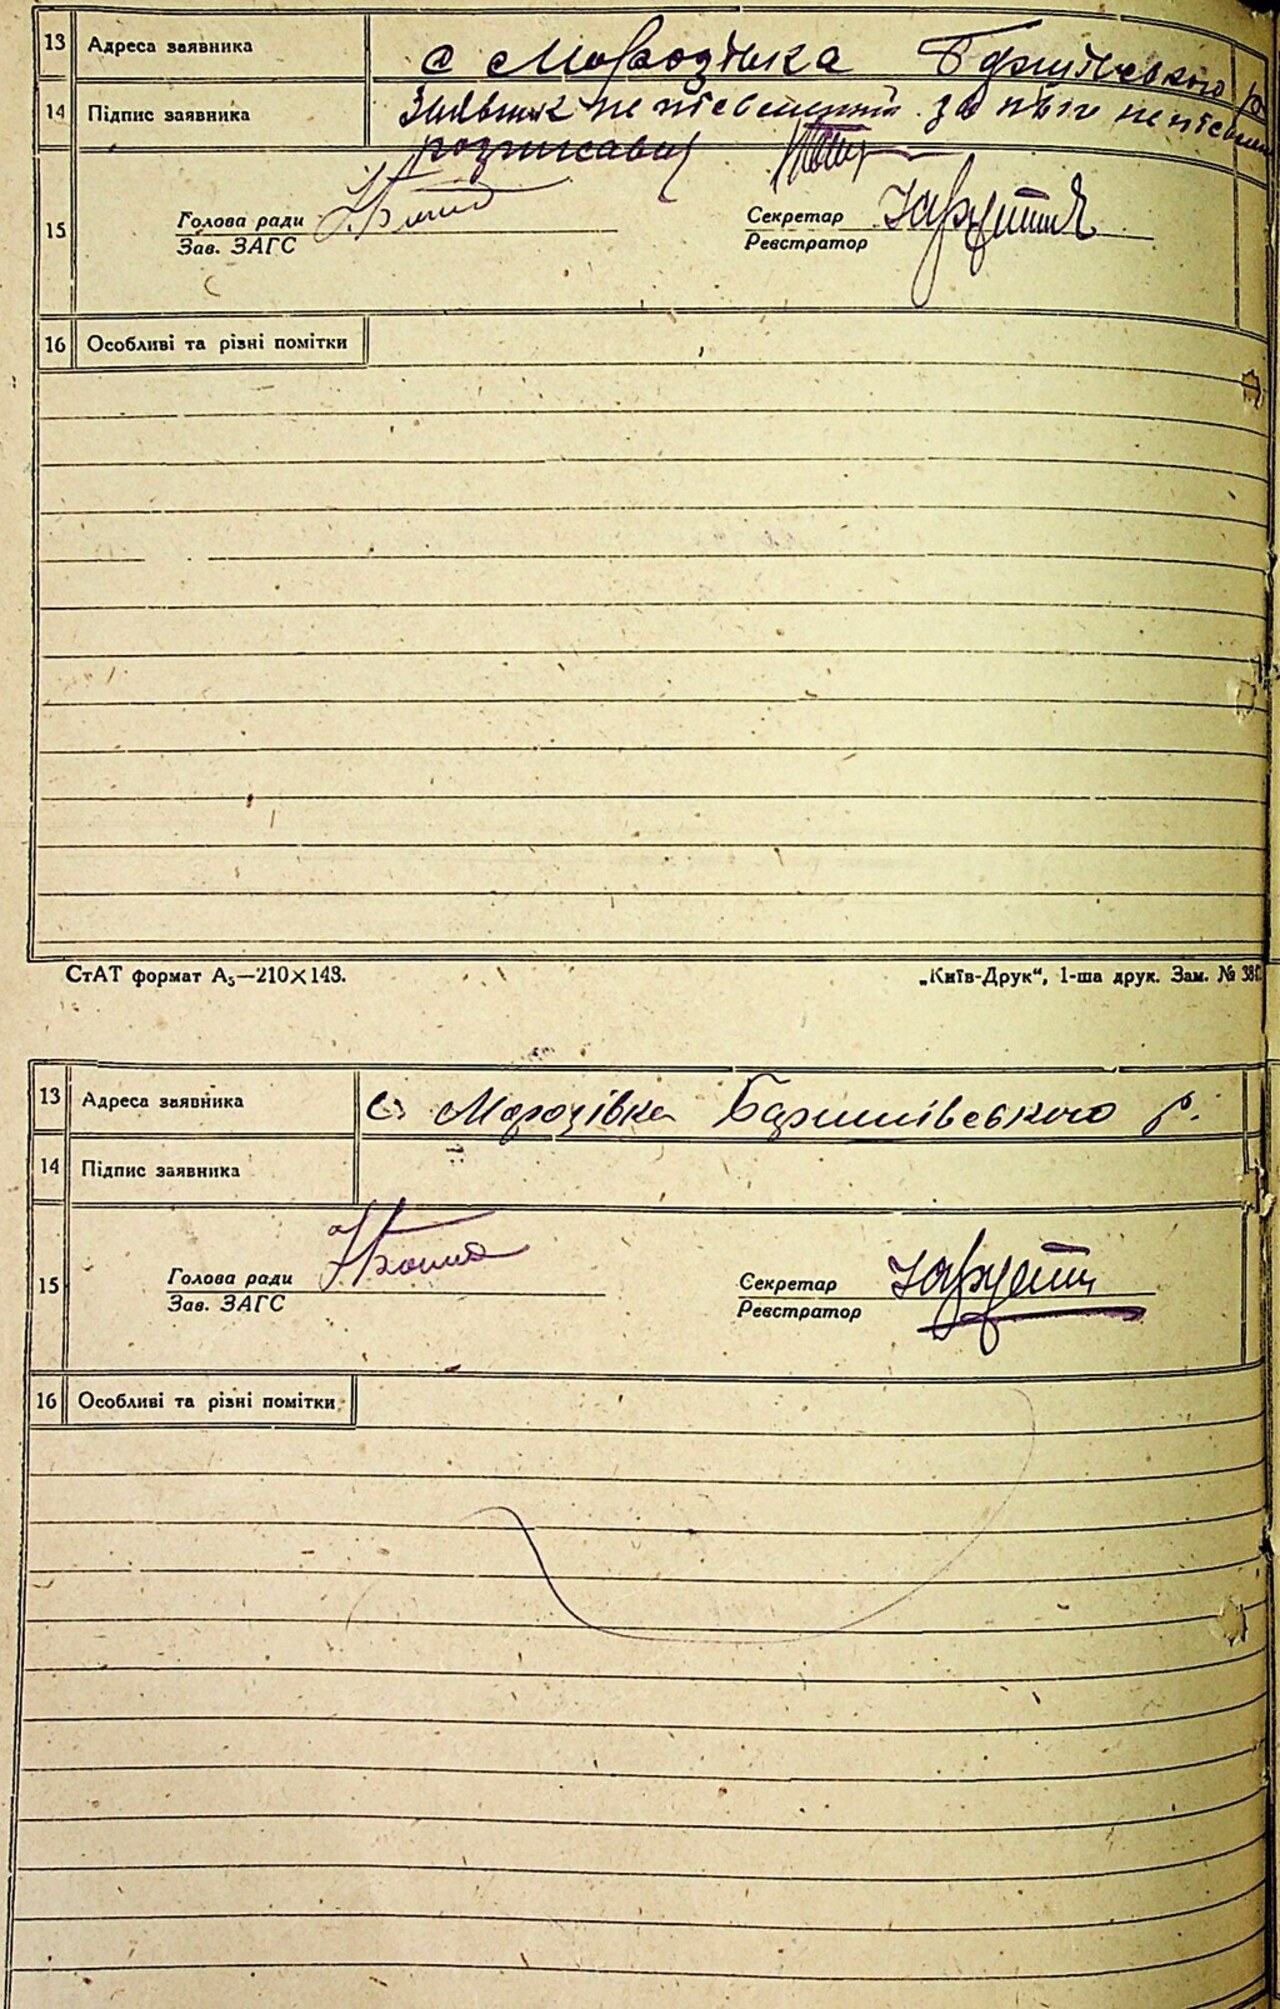 13 Адреса заявника с Морозівка Баришівського р
14 Підпис заявника Заявник не письменний за його неписьм
розписавсь
15 Голова ради Секретар
Зав. ЗАГС Реєстратор
16 Особливі та різні помітки
СтАТ формат А₅—210×143. „Київ-Друк“, 1-ша друк. Зам. №
13 Адреса заявника с Морозівка Баришівського р.
14 Підпис заявника
15 Голова ради Секретар
Зав. ЗАГС Реєстратор
16 Особливі та різні помітки